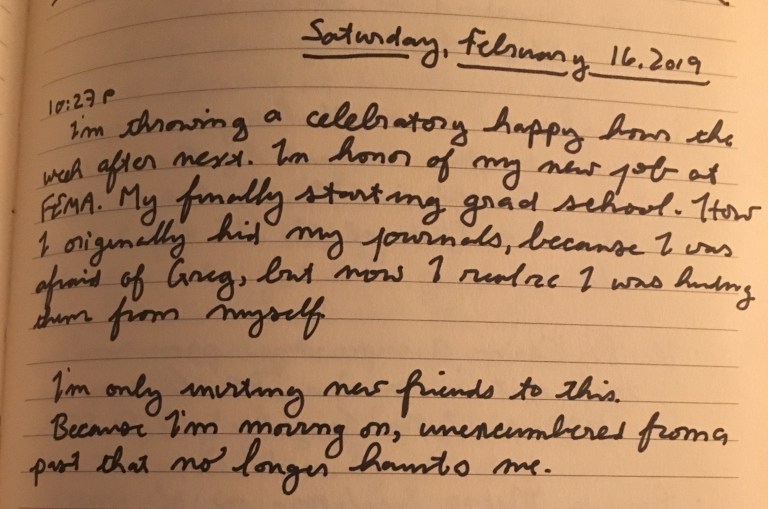 Saturday, February 16, 2019
10:27 P
I'm throwing a celebratory happy hour the
week after next. In honor of my new job at
FEMA. My finally starting grad school. How
I originally hid my journals, because I was
afraid of Greg, but now I realize I was hiding
them from myself
I'm only inviting new friends to this.
Because I'm moving on, unencumbered from a
past that no longer haunts me.